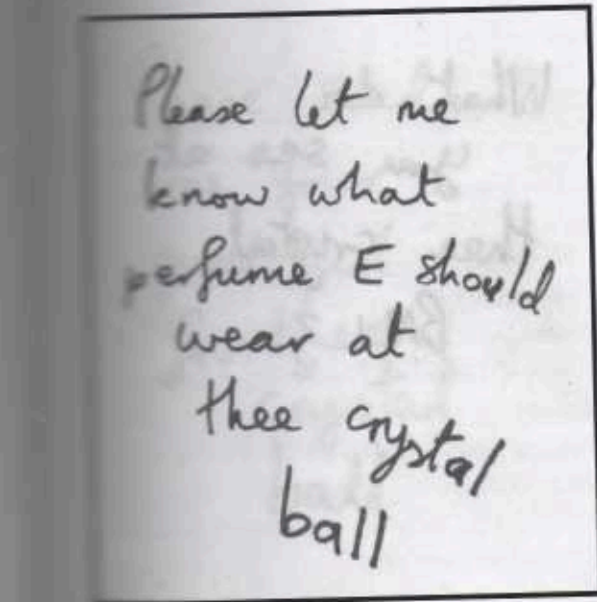 Please let me
know what
perfume E should
wear at
thee crystal
ball